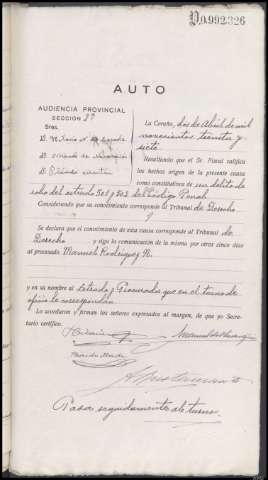 D.0.992,326
AUTO
AUDIENCIA PROVINCIAL
SECCIÓN 2ª
Sres.
D.
D.
D.
La Coruña, dos de Abril de mil
novecientos treinta y
siete
Resultando que el Sr. Fiscal califica
los hechos origen de la presente causa
como constitutivos de un delito de
del artículo 501 y 503 del Código Penal
Considerando que su conocimiento corresponde al Tribunal de Derecho
Se declara que el conocimiento de esta causa corresponde al Tribunal de
Derecho y siga la comunicación de la misma por otros cinco días
al procesado Manuel Rodríguez R.
y en su nombre al Letrado y Procurador que en el turno de
oficio le correspondan
Lo acordaron y firman los señores expresados al margen, de que yo Secre-
tario certifico.
Pasa seguidamente al turno.